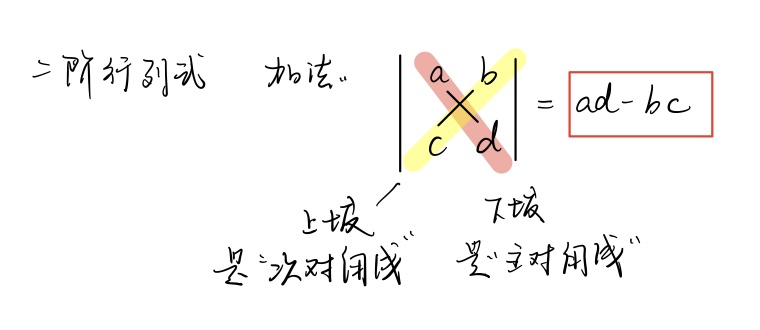 二阶行列式
| a b |
| c d | = ad-bc
上坡 下坡
是"次对角线" 是"主对角线"